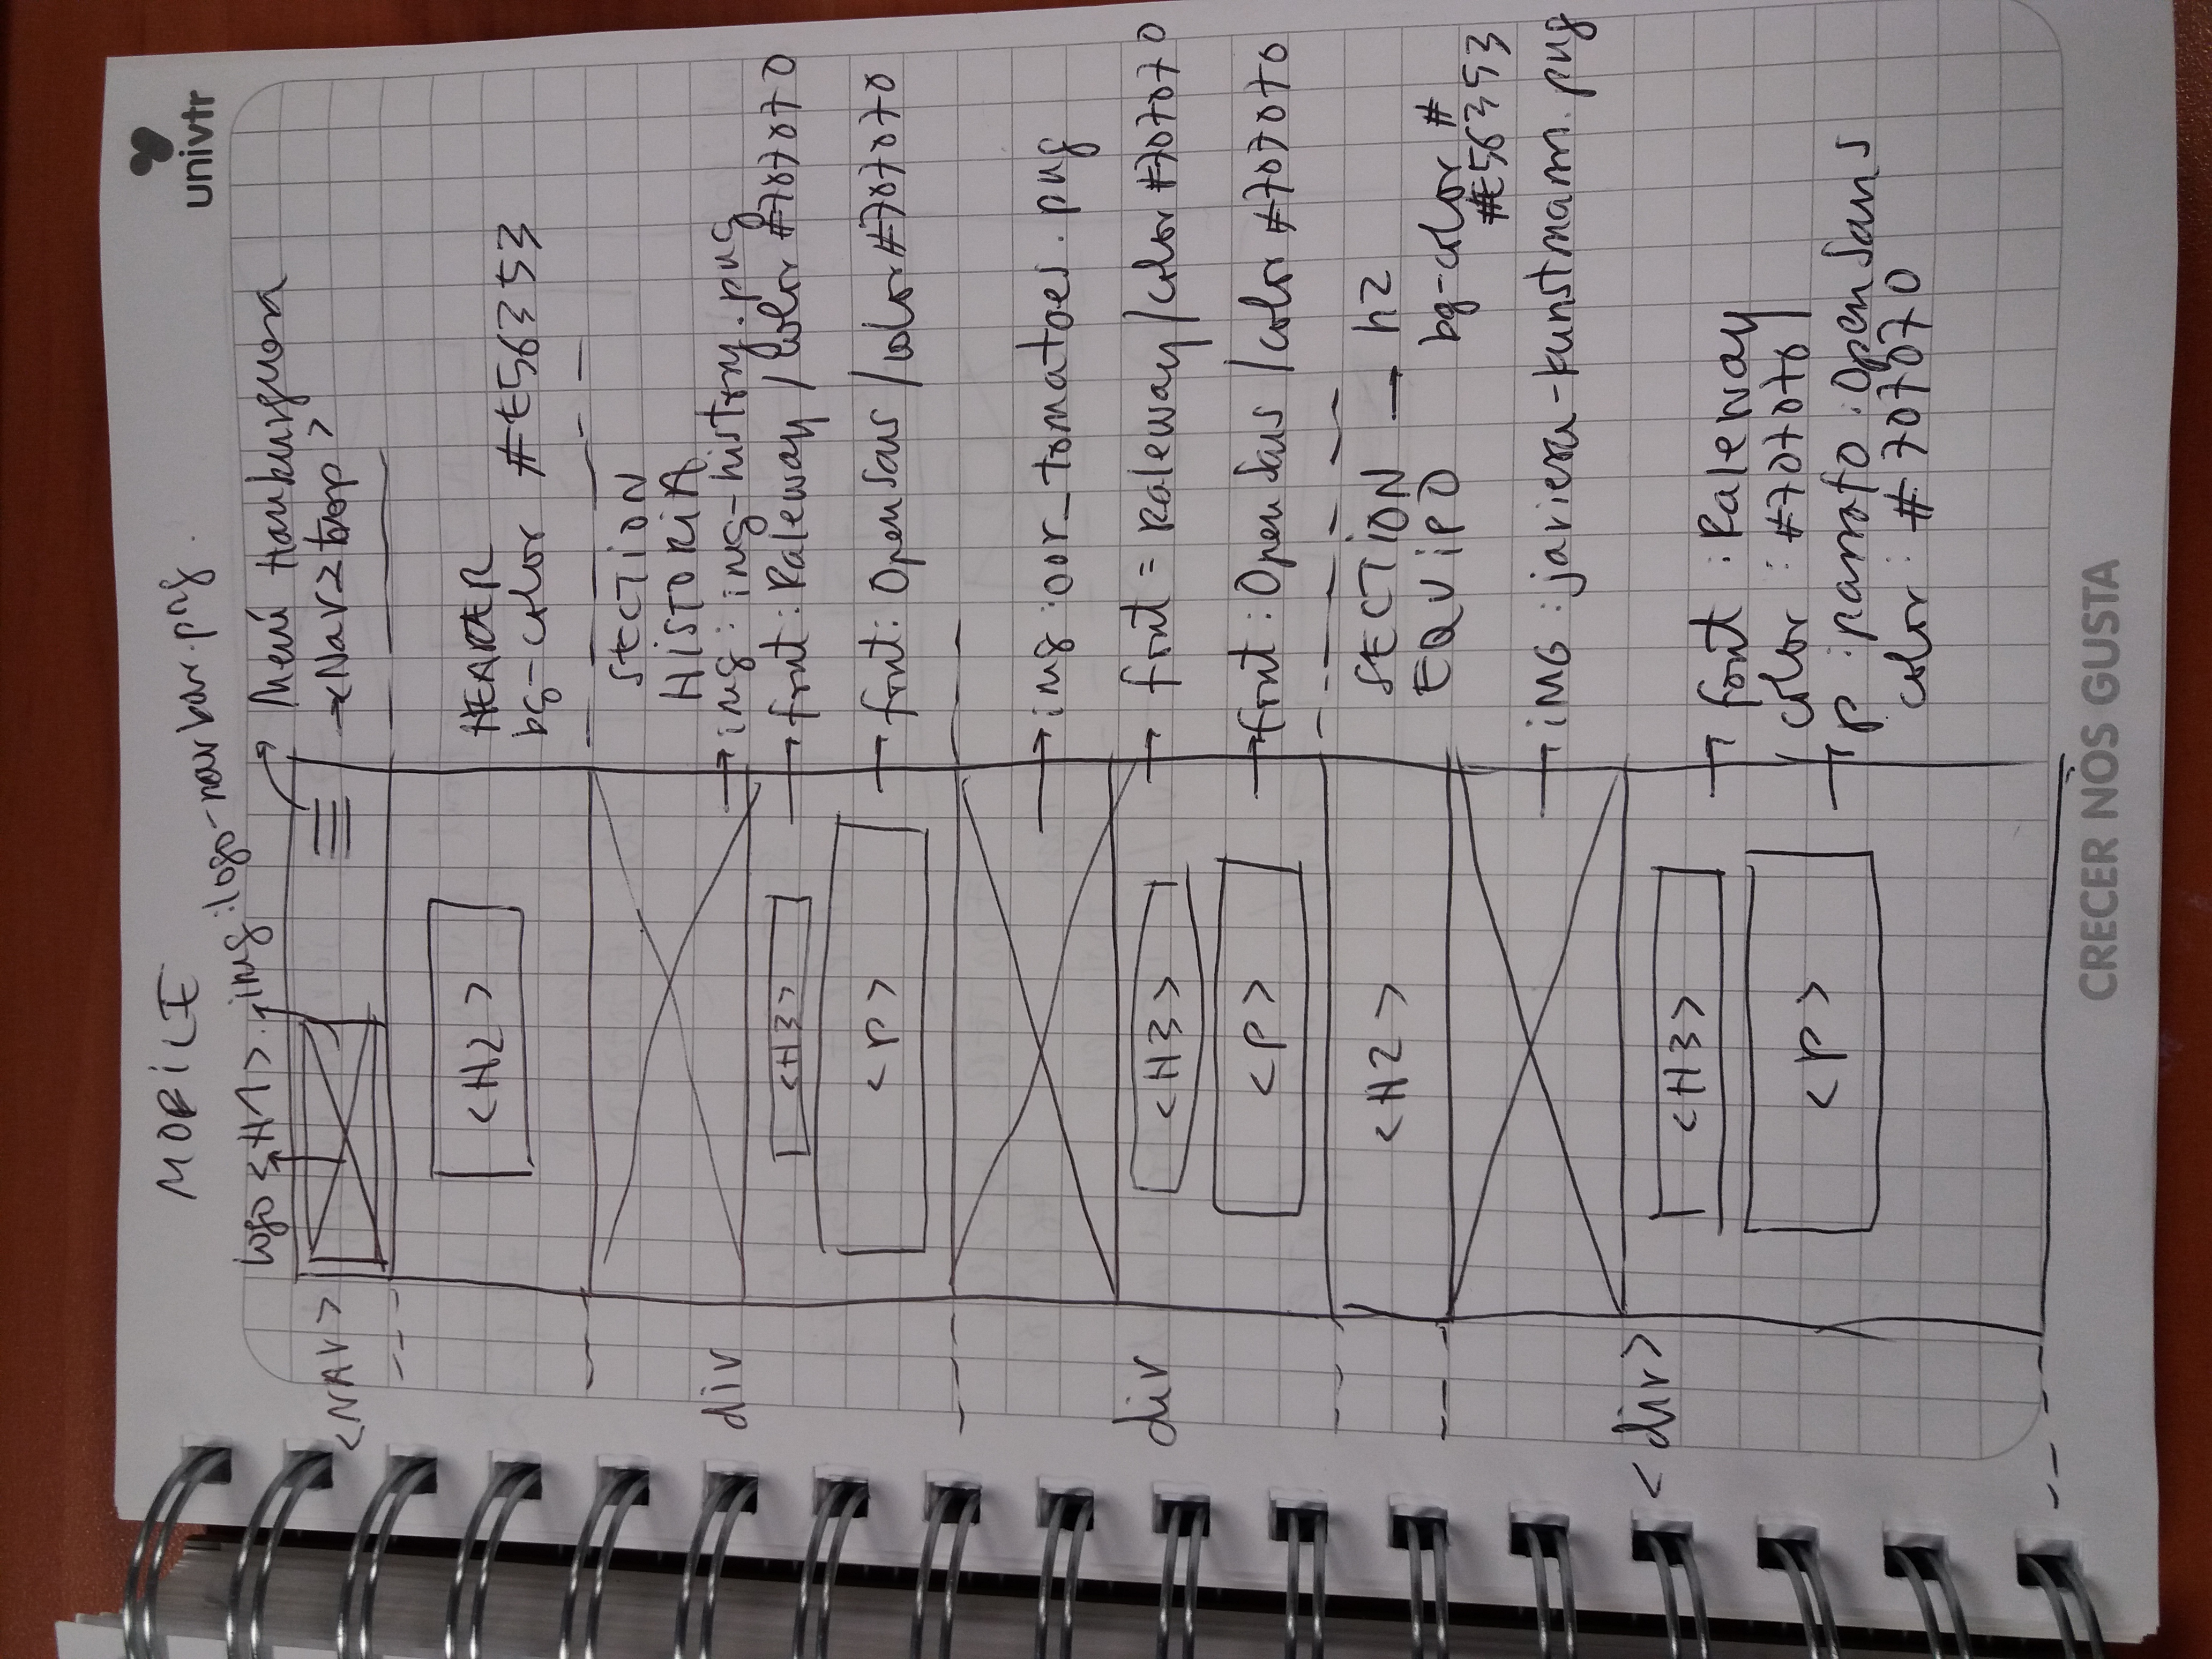 univtr
MOBILE
logo <H1> img:logo-navbar.png.
Menú Hamburguesa
<NAV>
<H2>
HEADER
bg-color #E56353
SECTION
HISTORIA
div
img: img-history.png
<H3>
font: Raleway / color #707070
<P>
font: Open Sans / color #707070
img :oor_tomatoes.png
div
<H3>
font = Raleway / color #707070
<P>
font: Open Sans / color #707070
<H2>
SECTION → h2
EQUIPO bg-color #
#E56353
IMG : javiera-kunstmann.png
<div>
<H3>
font : Raleway
color : #707070
<P>
p : parrafo : Open Sans
color: # 707070
CRECER NOS GUSTA